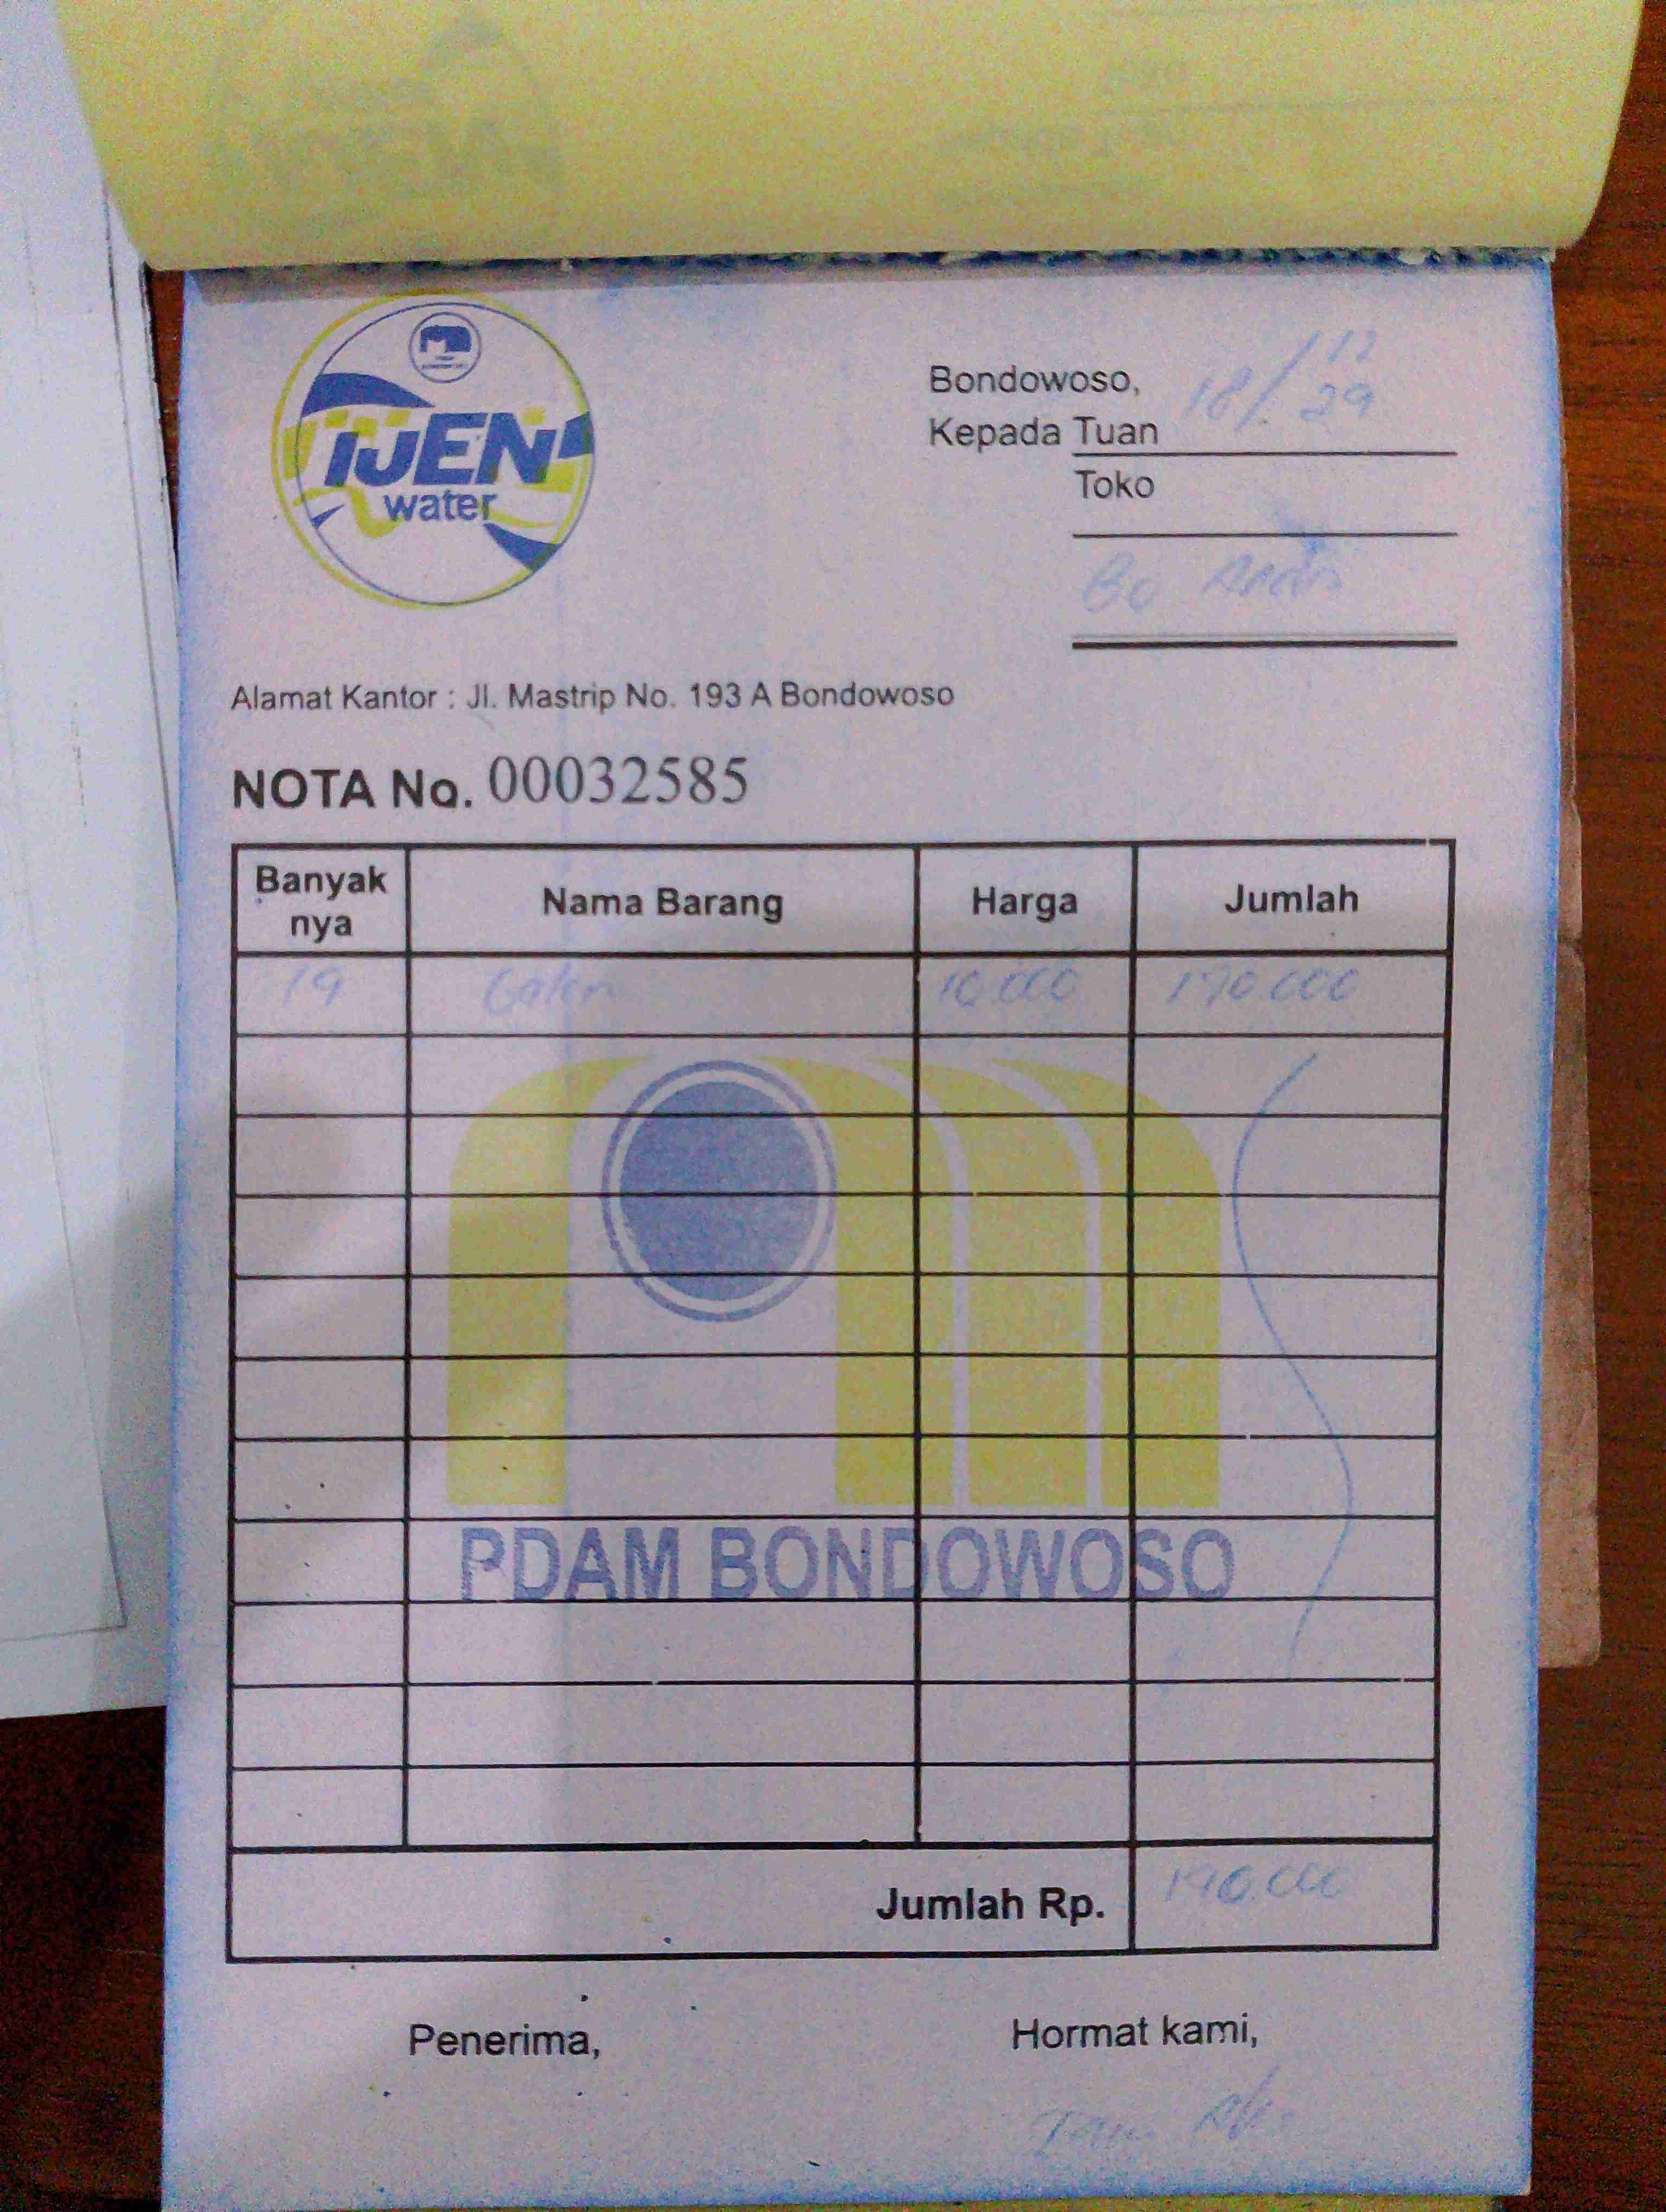 IJEN
water
Bondowoso, 18/12
Kepada Tuan
Toko
Alamat Kantor : Jl. Mastrip No. 193 A Bondowoso
NOTA No. 00032585
Banyak nya Nama Barang Harga Jumlah
19 Galon 10.000 190.000
PDAM BONDOWOSO
Jumlah Rp. 190.000
Penerima, Hormat kami,